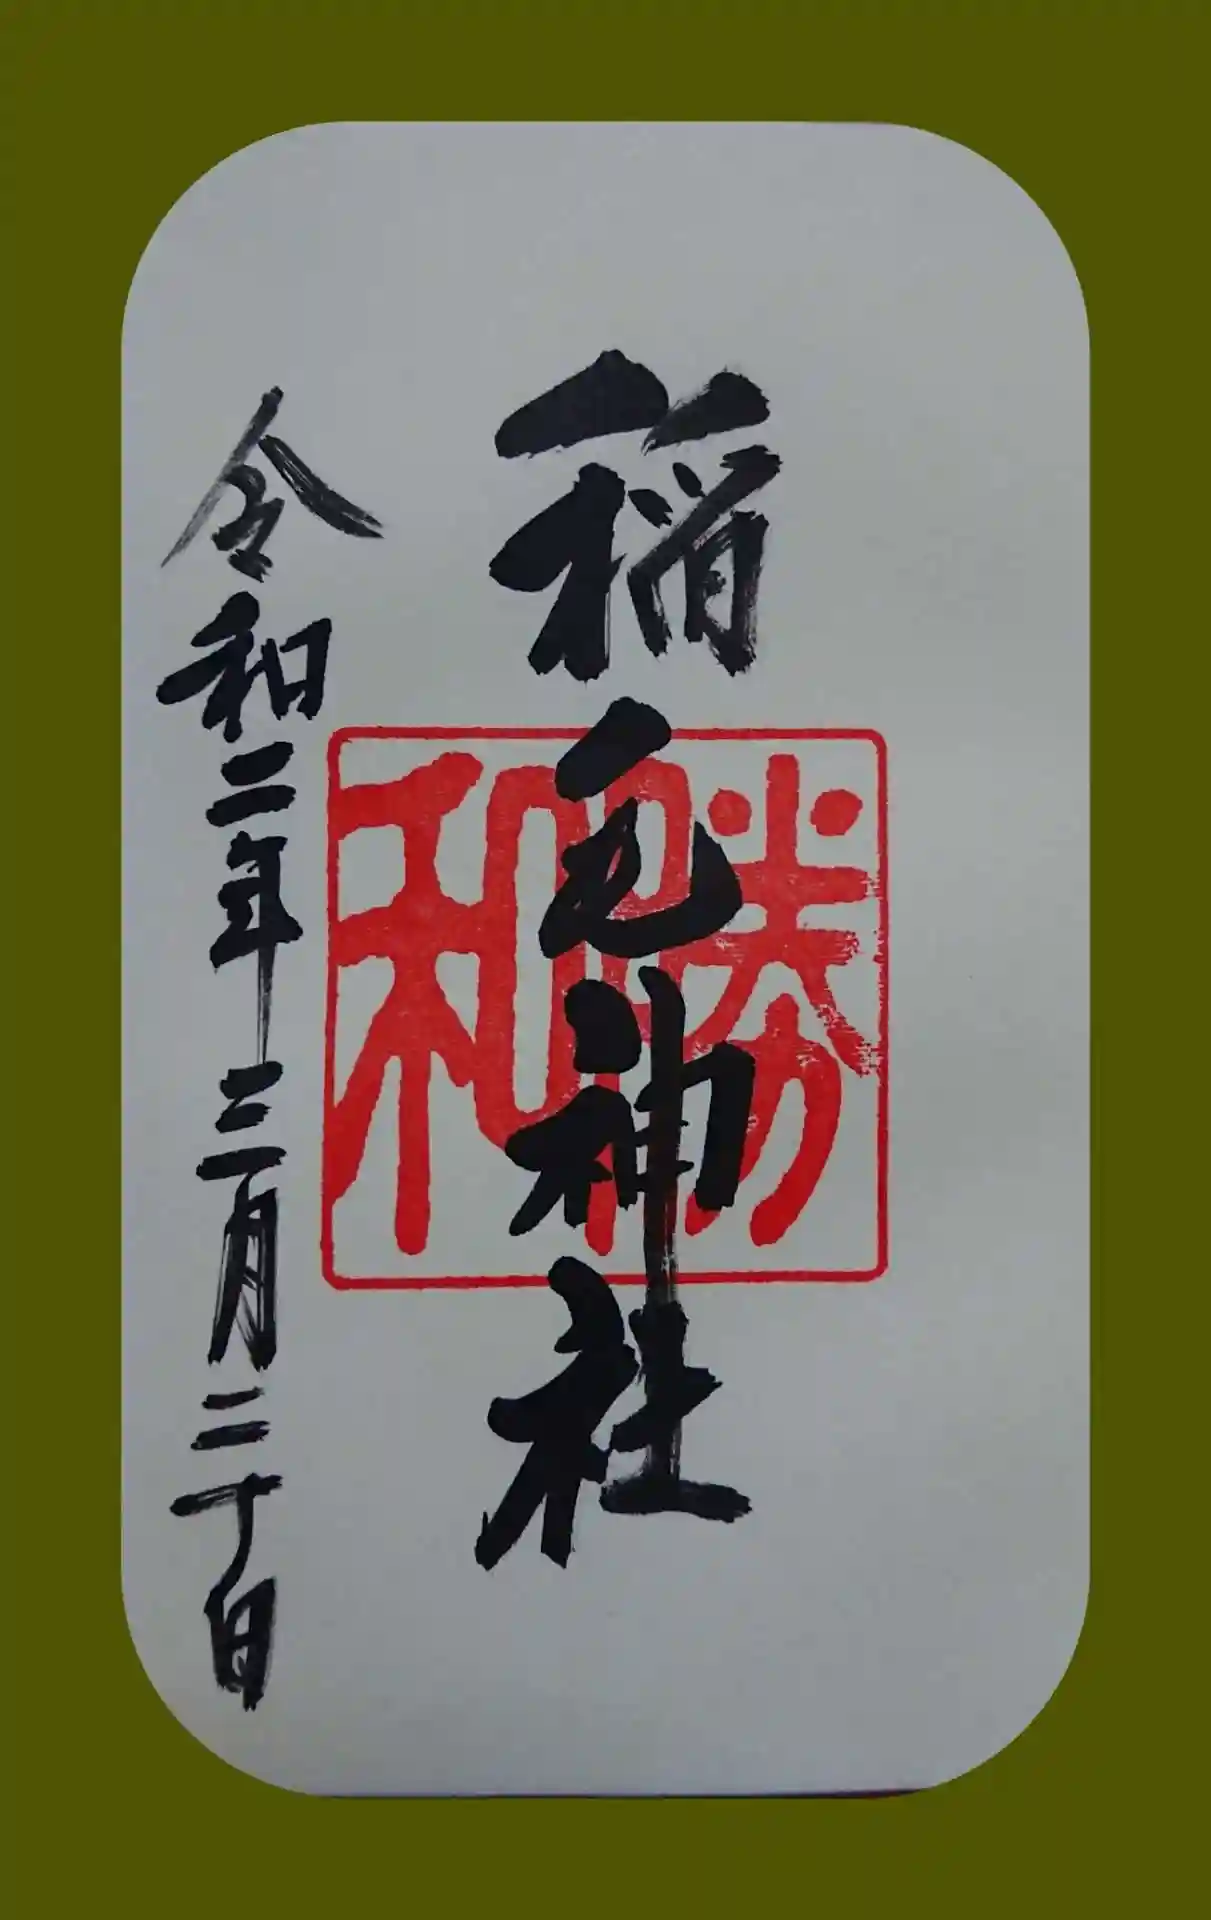 稲毛神社
勝和
令和二年三月二十日